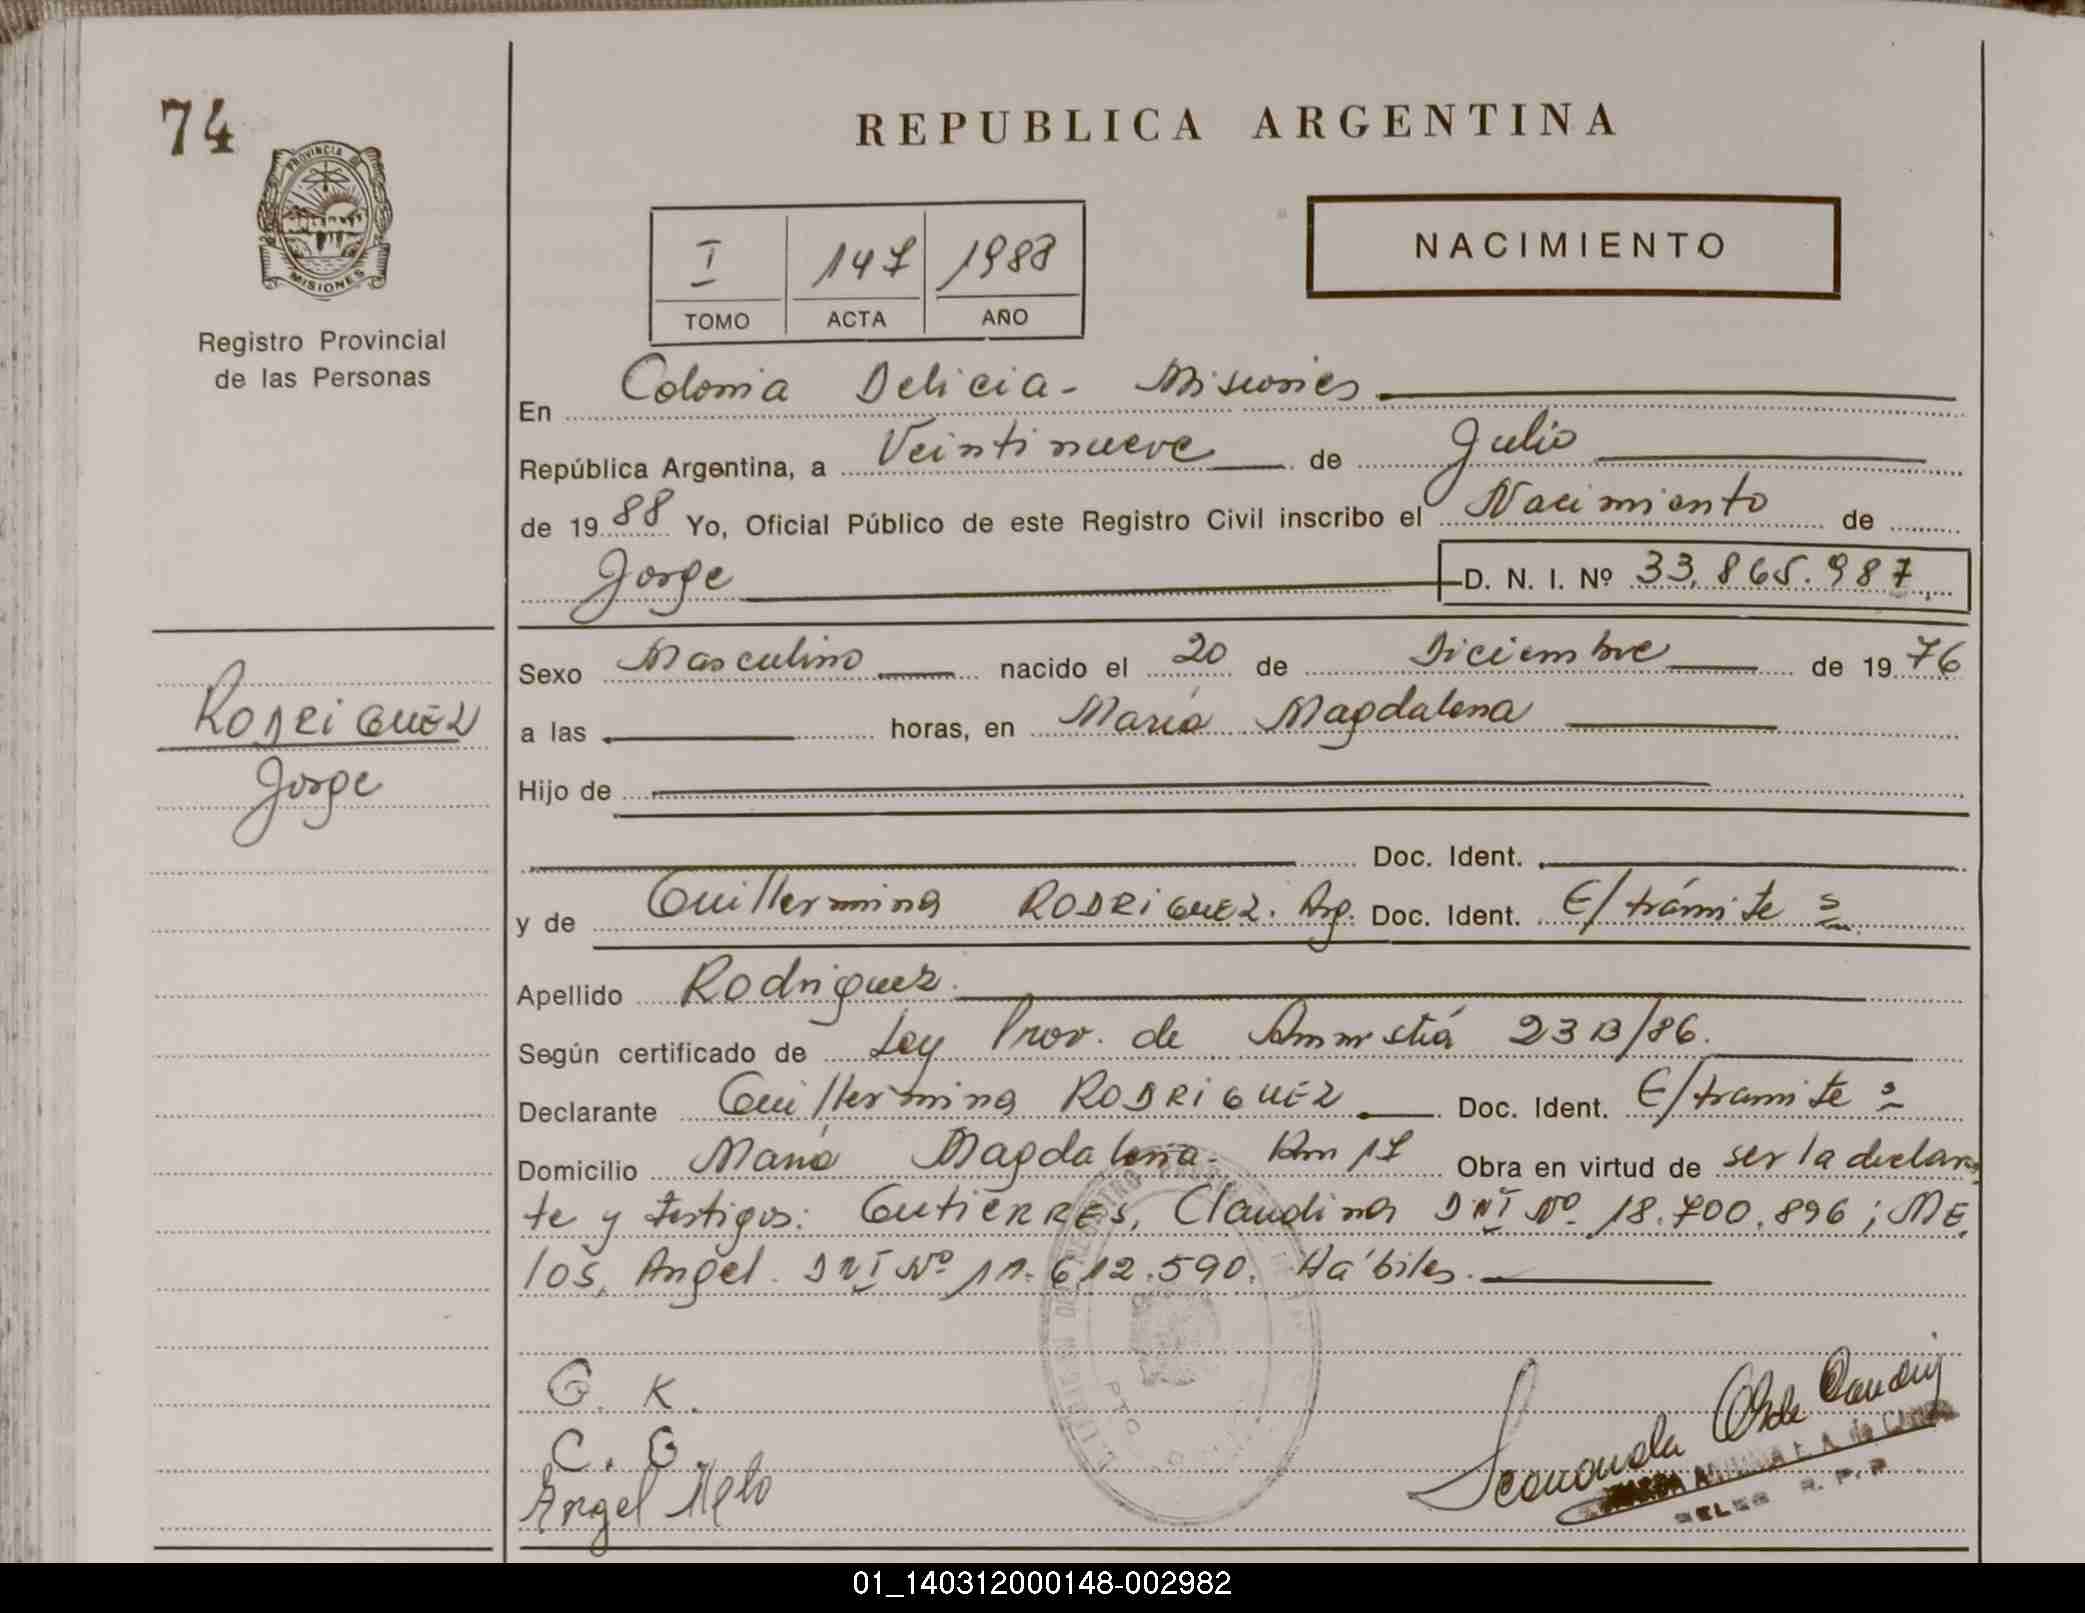 74
PROVINCIA DE
MISIONES
Registro Provincial
de las Personas
RODRiGUEZ
Jorge
REPUBLICA ARGENTINA
NACIMIENTO
I 147 1988
TOMO ACTA AÑO
En Colonia Delicia - Misiones
República Argentina, a Veintinueve de Julio
de 1988 Yo, Oficial Público de este Registro Civil inscribo el Nacimiento de
Jorge D. N. I. Nº 33.865.987
Sexo Masculino nacido el 20 de Diciembre de 1976
a las horas, en María Magdalena
Hijo de
Doc. Ident.
y de Guillermina RODRiGUEZ. Arg. Doc. Ident. E/trámite
Apellido Rodriguez.
Según certificado de Ley Prov. de Amnistiá 23B/86.
Declarante Guillermina RODRiGUEZ Doc. Ident. E/tramite
Domicilio María Magdalena - Km 17 Obra en virtud de ser la declaran
te y testigos: GutiERRES, Claudina DNI Nº 18.700.896; ME
los, Angel. DNI Nº 11.612.590. Hábiles.
G. K.
C. G.
Angel Melo
R. P. P.
01_140312000148-002982